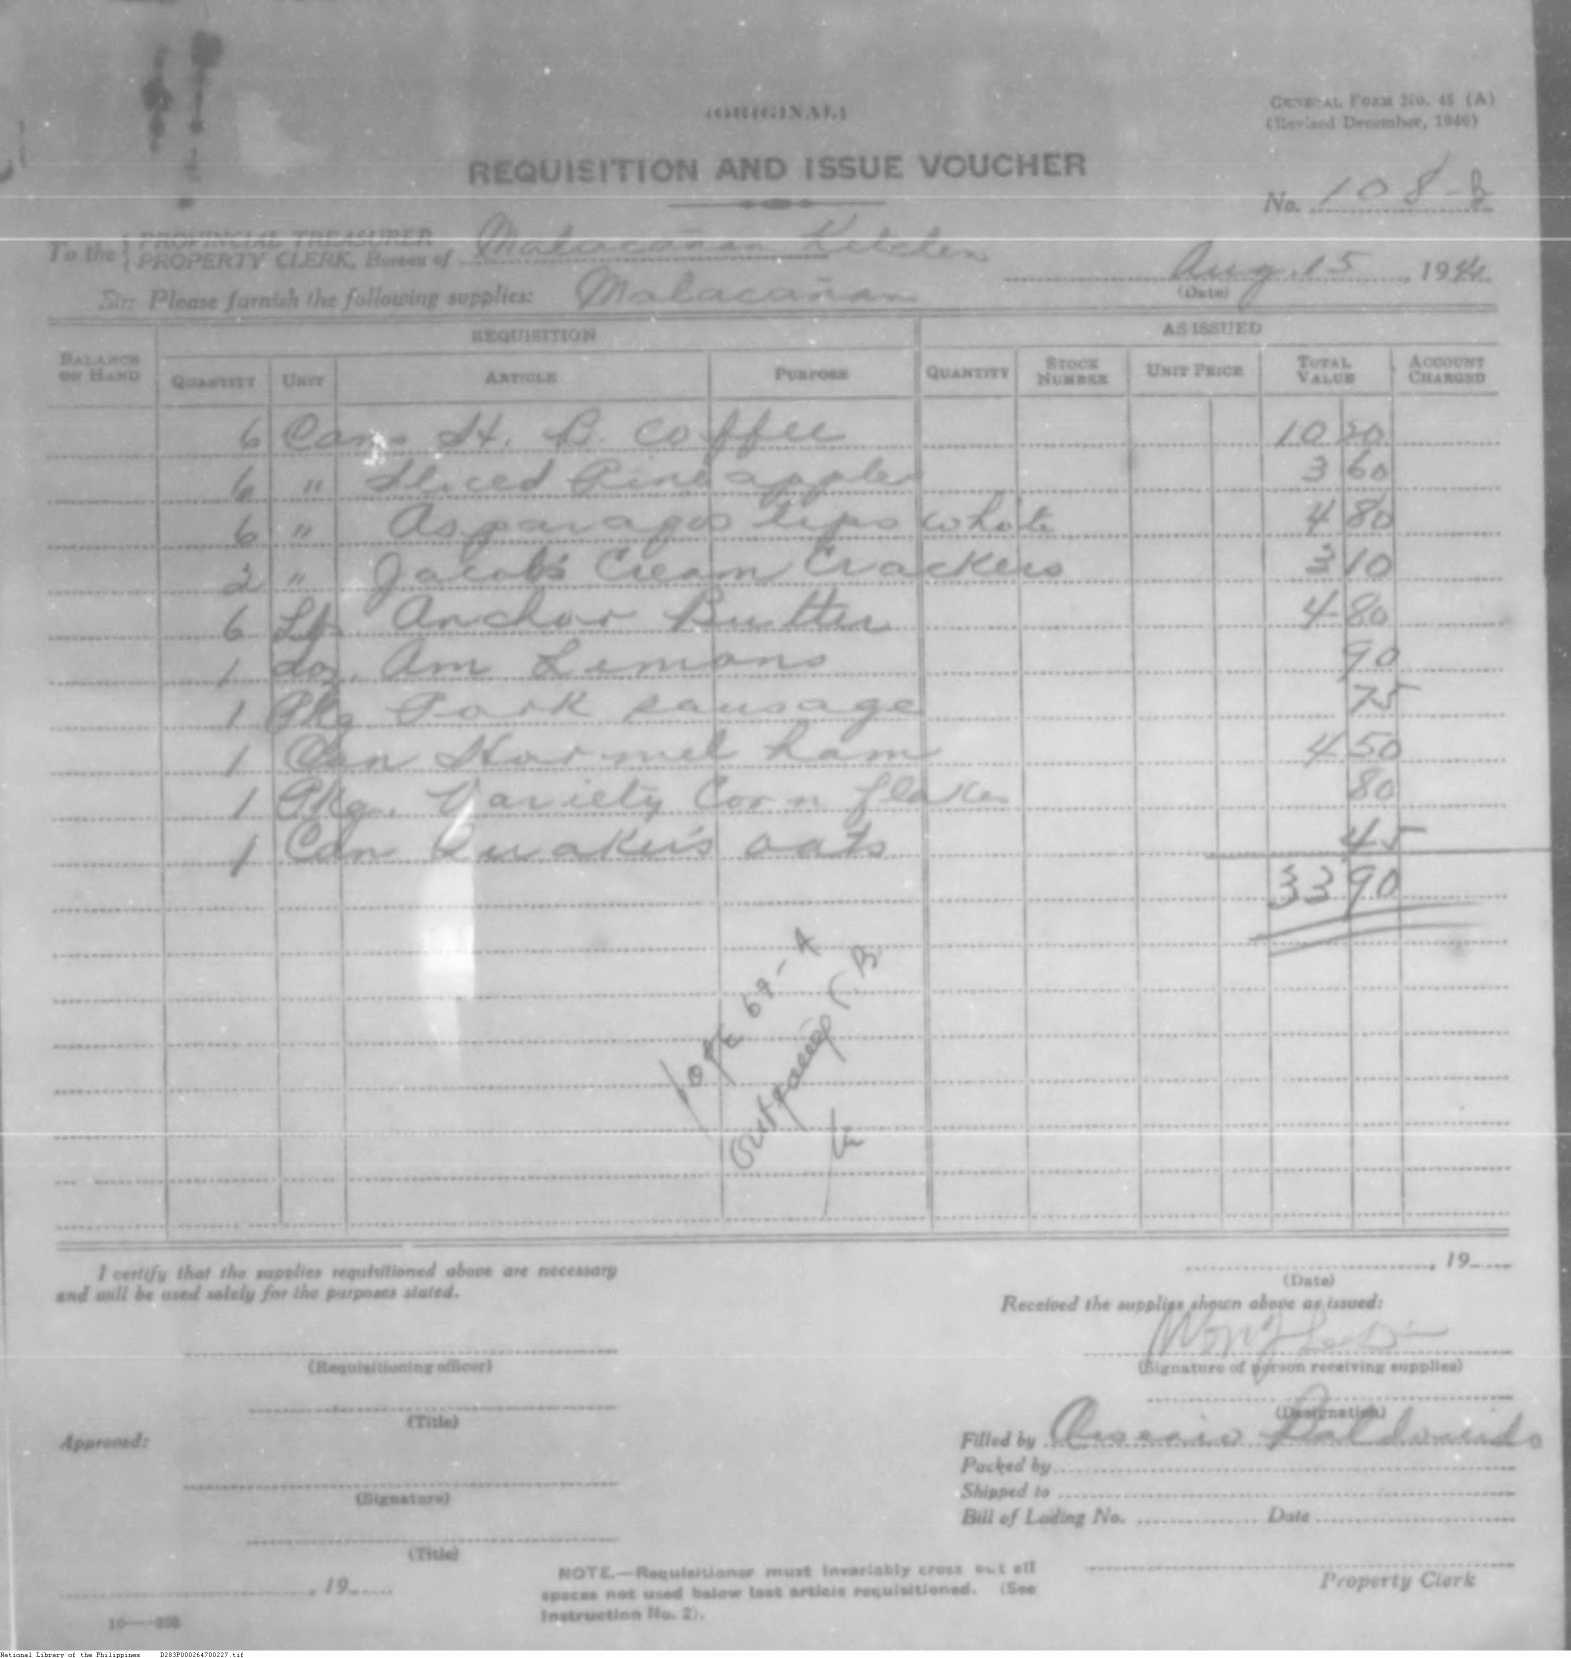 (ORIGINAL)
GENERAL FORM No. 45 (A)
(Revised December, 1940)
REQUISITION AND ISSUE VOUCHER
No. 108-B
To the { PROVINCIAL TREASURER
PROPERTY CLERK, Bureau of Malacañan Kitchen
Aug. 15, 194
(Date)
Sir: Please furnish the following supplies: Malacañan
REQUISITION AS ISSUED
BALANCE ON HAND QUANTITY UNIT ARTICLE PURPOSE QUANTITY STOCK NUMBER UNIT PRICE TOTAL VALUE ACCOUNT CHARGED
6 Cans H. B. Coffee 10 20
6 " Sliced Pineapples 3 60
6 " Asparagus tips white 4 80
2 " Jacob's Cream Crackers 3 10
6 Lbs Anchor Butter 4 80
1 doz. Am Lemons 90
1 Pkg Pork sausage 75
1 Can Hormel ham 4 50
1 Pkg. Variety Corn flakes 80
1 Can Quaker's oats 45
33 90
69-A
I certify that the supplies requisitioned above are necessary
and will be used solely for the purposes stated.
, 19
(Date)
Received the supplies shown above as issued:
(Requisitioning officer)
(Signature of person receiving supplies)
(Title)
(Designation)
Approved:
Filled by
Packed by
(Signature)
Shipped to
Bill of Lading No. Date
(Title)
, 19
NOTE.—Requisitioner must invariably cross out all
spaces not used below last article requisitioned. (See
Instruction No. 2).
Property Clerk
National Library of the Philippines D283P000264700227.tif